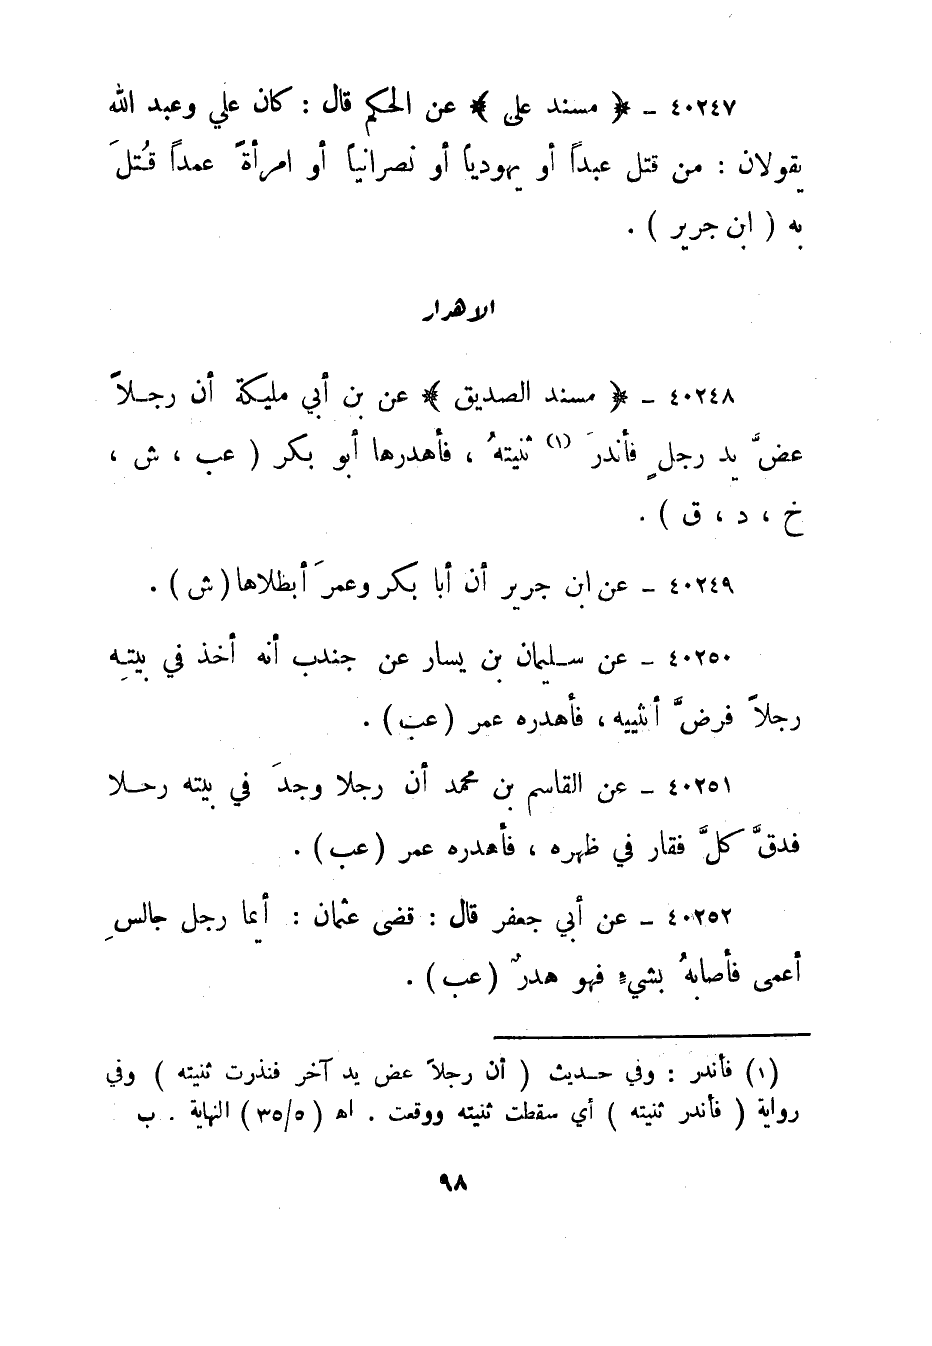 ٤٠٢٤٧ ـ ﴿ مسند على ﴾ عن الحكم قال : كان علي وعبد الله
يقولان : من قتل عبداً أو يهودياً أو نصرانياً أو امرأةً عمداً قُتلَ
به ( ابن جرير ) .
الاهدار
٤٠٢٤٨ ـ ﴿ مسند الصديق ﴾ عن بن أبي مليكة أن رجـلاً
عضَّ يد رجلٍ فأندرَ (١) ثنيتهُ ، فأهدرها أبو بكر ( عب ، ش ،
خ ، د ، ق ) .
٤٠٢٤٩ ـ عن ابن جرير أن أبا بكر وعمرَ أبظلاها ( ش ) .
٤٠٢٥٠ ـ عن سـليمان بن يسار عن جندب أنه أخذ في بيتـِه
رجلاً فرضَّ أنثييه ، فأهدره عمر ( عب ) .
٤٠٢٥١ ـ عن القاسم بن محمد أن رجلا وجدَ في بيته رحـلا
فدقَّ كلَّ فقار في ظهره ، فأهدره عمر ( عب ) .
٤٠٢٥٢ ـ عن أبي جعفر قال : قضى عثمان : أيما رجل جالسِ
أعمى فأصابهُ بشيءٍ فهو هدرٌ ( عب ) .
(١) فأندر : وفي حـديث ( أن رجلاً عض يد آخر فنذرت ثنيته ) وفي
رواية ( فأندر ثنيته ) أي سقطت ثنيته ووقعت . اه ( ٣٥/٥ ) النهاية . ب
٩٨